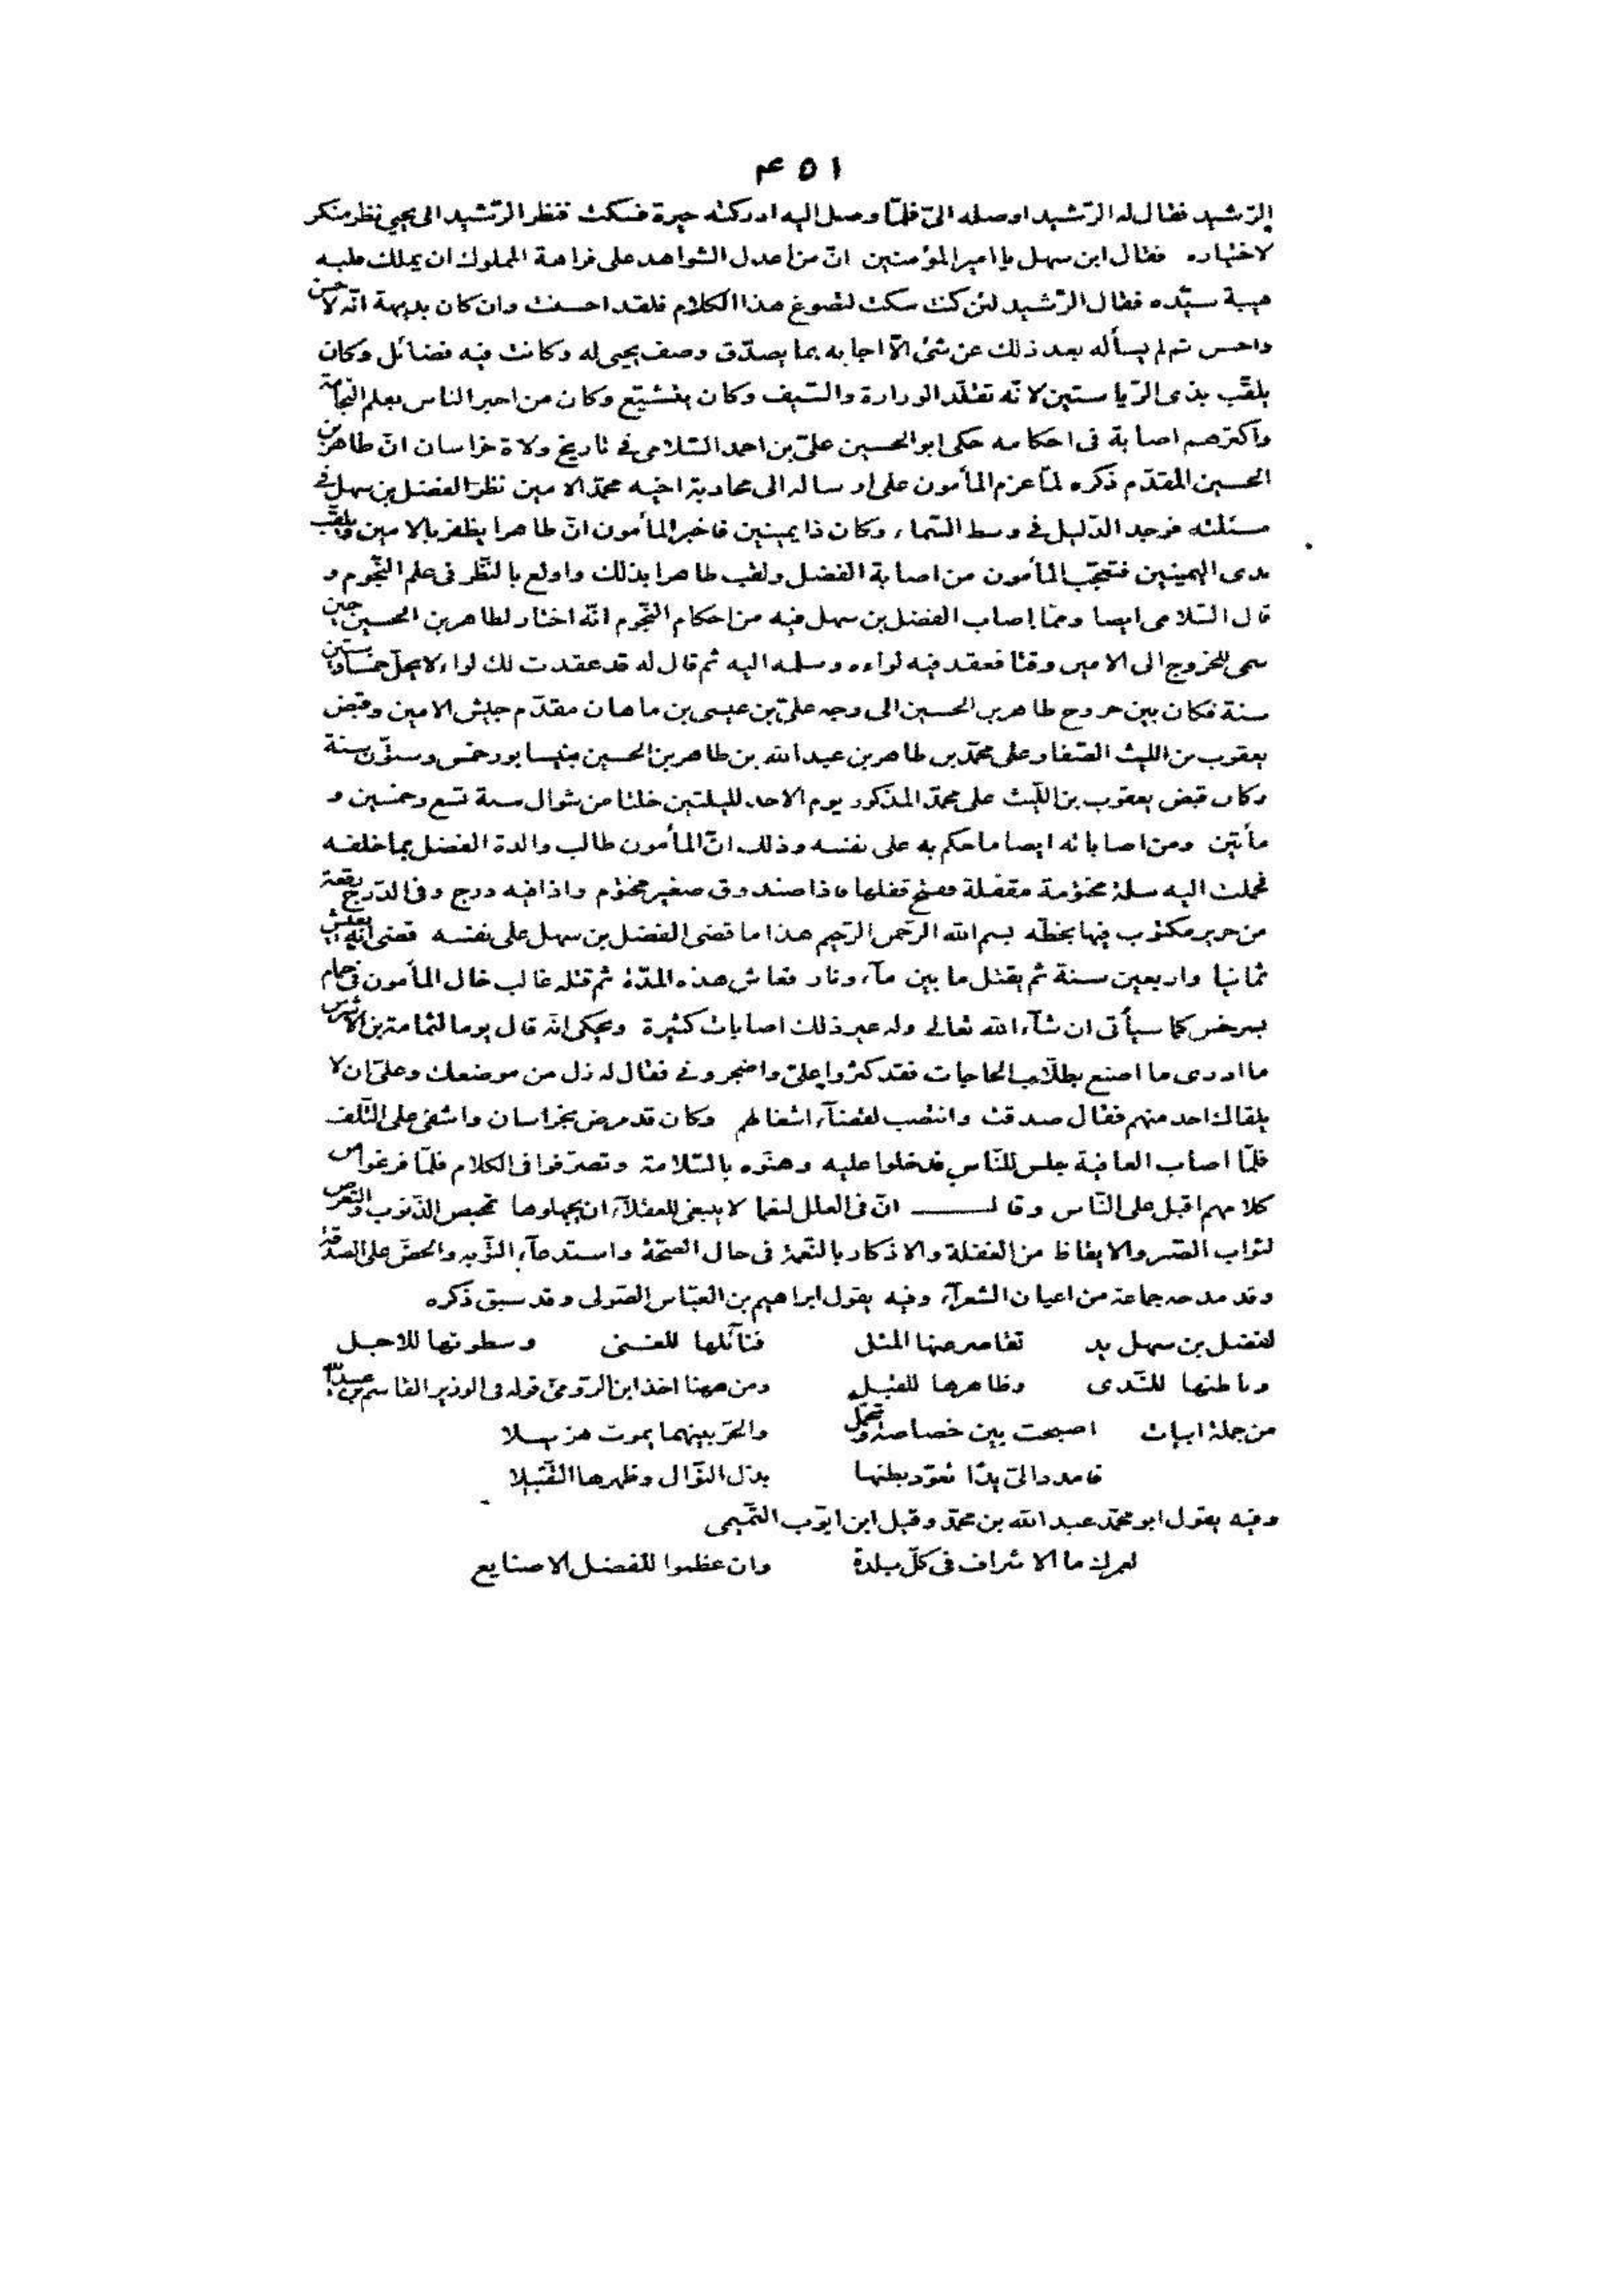 ٤٥١
الرّشيد فقال له الرّشيد اوصله الىّ فلمّا وصل اليه ادركته حيرة فسكت فنظر الرّشيد الى يحيى نظر منكر
لاختياره فقال ابن سهل يا امير المؤمنين انّ من اعدل الشواهد على فراهة المملوك ان يملك قلبه
هيبة سيّده فقال الرّشيد لئن كنت سكت لتصوغ هذا الكلام فلقد احسنت وان كان بديهة انّه لاحسن
واحسن ثم لم يسأله بعد ذلك عن شئ الّا اجابه بما يصدّق وصف يحيى له وكانت فيه فضائل وكان
يلقّب بذى الرّياستين لانّه تقلّد الوزارة والسّيف وكان يتشيّع وكان من اخبر الناس بعلم النّجامة
واكثرهم اصابة فى احكامه حكى ابو الحسين علىّ بن احمد السّلامى فى تاريخ ولاة خراسان انّ طاهر بن
الحسين المقدّم ذكره لمّا عزم المأمون على ارساله الى محاربة اخيه محمّد الامين نظر الفضل بن سهل فى
مسئلته فوجد الدّليل فى وسط السّماء وكان ذا يمينين فاخبر المأمون انّ طاهرا يظفر بالامين ويلقّب
بذى اليمينين فتعجّب المأمون من اصابة الفضل ولقب طاهرا بذلك واولع بالنّظر فى علم النّجوم و
قال السّلامى ايضا وممّا اصاب الفضل بن سهل فيه من احكام النّجوم انّه اختار لطاهر بن الحسين حين
سمى للخروج الى الامين وقتا فعقد فيه لواءه وسلمه اليه ثم قال له قد عقدت لك لواء لا يحلّ خمسا وستين
سنة فكان بين خروج طاهر بن الحسين الى وجه علىّ بن عيسى بن ماهان مقدّم جيش الامين وقبض
يعقوب بن الليث الصّفار على محمّد بن طاهر بن عبد الله بن طاهر بن الحسين بنيسابور خمس وستّون سنة
وكان قبض يعقوب بن اللّيث على محمّد المذكور يوم الاحد لليلتين خلتا من شوال سنة تسع وخمسين و
مأتين ومن اصاباته ايضا ما حكم به على نفسه وذلك انّ المأمون طالب والدة الفضل بما خلفه
فحملت اليه سلة مختومة مقفلة ففتح قفلها فاذا صندوق صغير مختوم واذا فيه درج وفى الدّرج رقعة
من حرير مكتوب فيها بخطّه بسم الله الرّحمن الرّحيم هذا ما قضى الفضل بن سهل على نفسه قضى انّه يعيش
ثمانيا واربعين سنة ثم يقتل ما بين مآء ونار فعاش هذه المدّة ثم قتله غالب خال المأمون فى حمام
بسرخس كما سيأتى ان شآء الله تعالى وله غير ذلك اصابات كثيرة ويحكى انّه قال يوما لثمامة بن الاشرس
ما ادرى ما اصنع بطلّاب الحاجات فقد كثروا علىّ واضجرونى فقال له زل من موضعك وعلىّ ان لا
يلقاك احد منهم فقال صدقت وانتصب لقضآء اشغالهم وكان قد مرض بخراسان واشفى على التّلف
فلمّا اصاب العافية جلس للنّاس فدخلوا عليه وهنّوه بالسّلامة وتصرّفوا فى الكلام فلمّا فرغوا من
كلامهم اقبل على النّاس وقال انّ فى العلل لنعما لا ينبغى للعقلآء ان يجهلوها تمحيص الذّنوب والتّعرض
لثواب الصّبر والايقاظ من الغفلة والاذكار بالنّعمة فى حال الصّحّة واستدعآء التّوبة والحضّ على الصدقة
وقد مدحه جماعة من اعيان الشعرآء وفيه يقول ابراهيم بن العبّاس الصّولى وقد سبق ذكره
لفضل بن سهل يد تقاصر عنها المثل فنآئلها للغنى وسطوتها للاجل
وباطنها للنّدى وظاهرها للقبل ومن ههنا اخذ ابن الرّومىّ قوله فى الوزير القاسم بن عبيد الله
من جملة ابيات اصبحت بين خصاصة وتجمّل والحرّ بينهما يموت هزيلا
فامدد الىّ يدًا تعوّد بطنها بذل النّوال وظهرها التّقبيلا
وفيه يقول ابو محمّد عبد الله بن محمّد وقيل ابن ايّوب التّميمى
لعمرك ما الاشراف فى كلّ بلدة وان عظموا للفضل الا صنايع